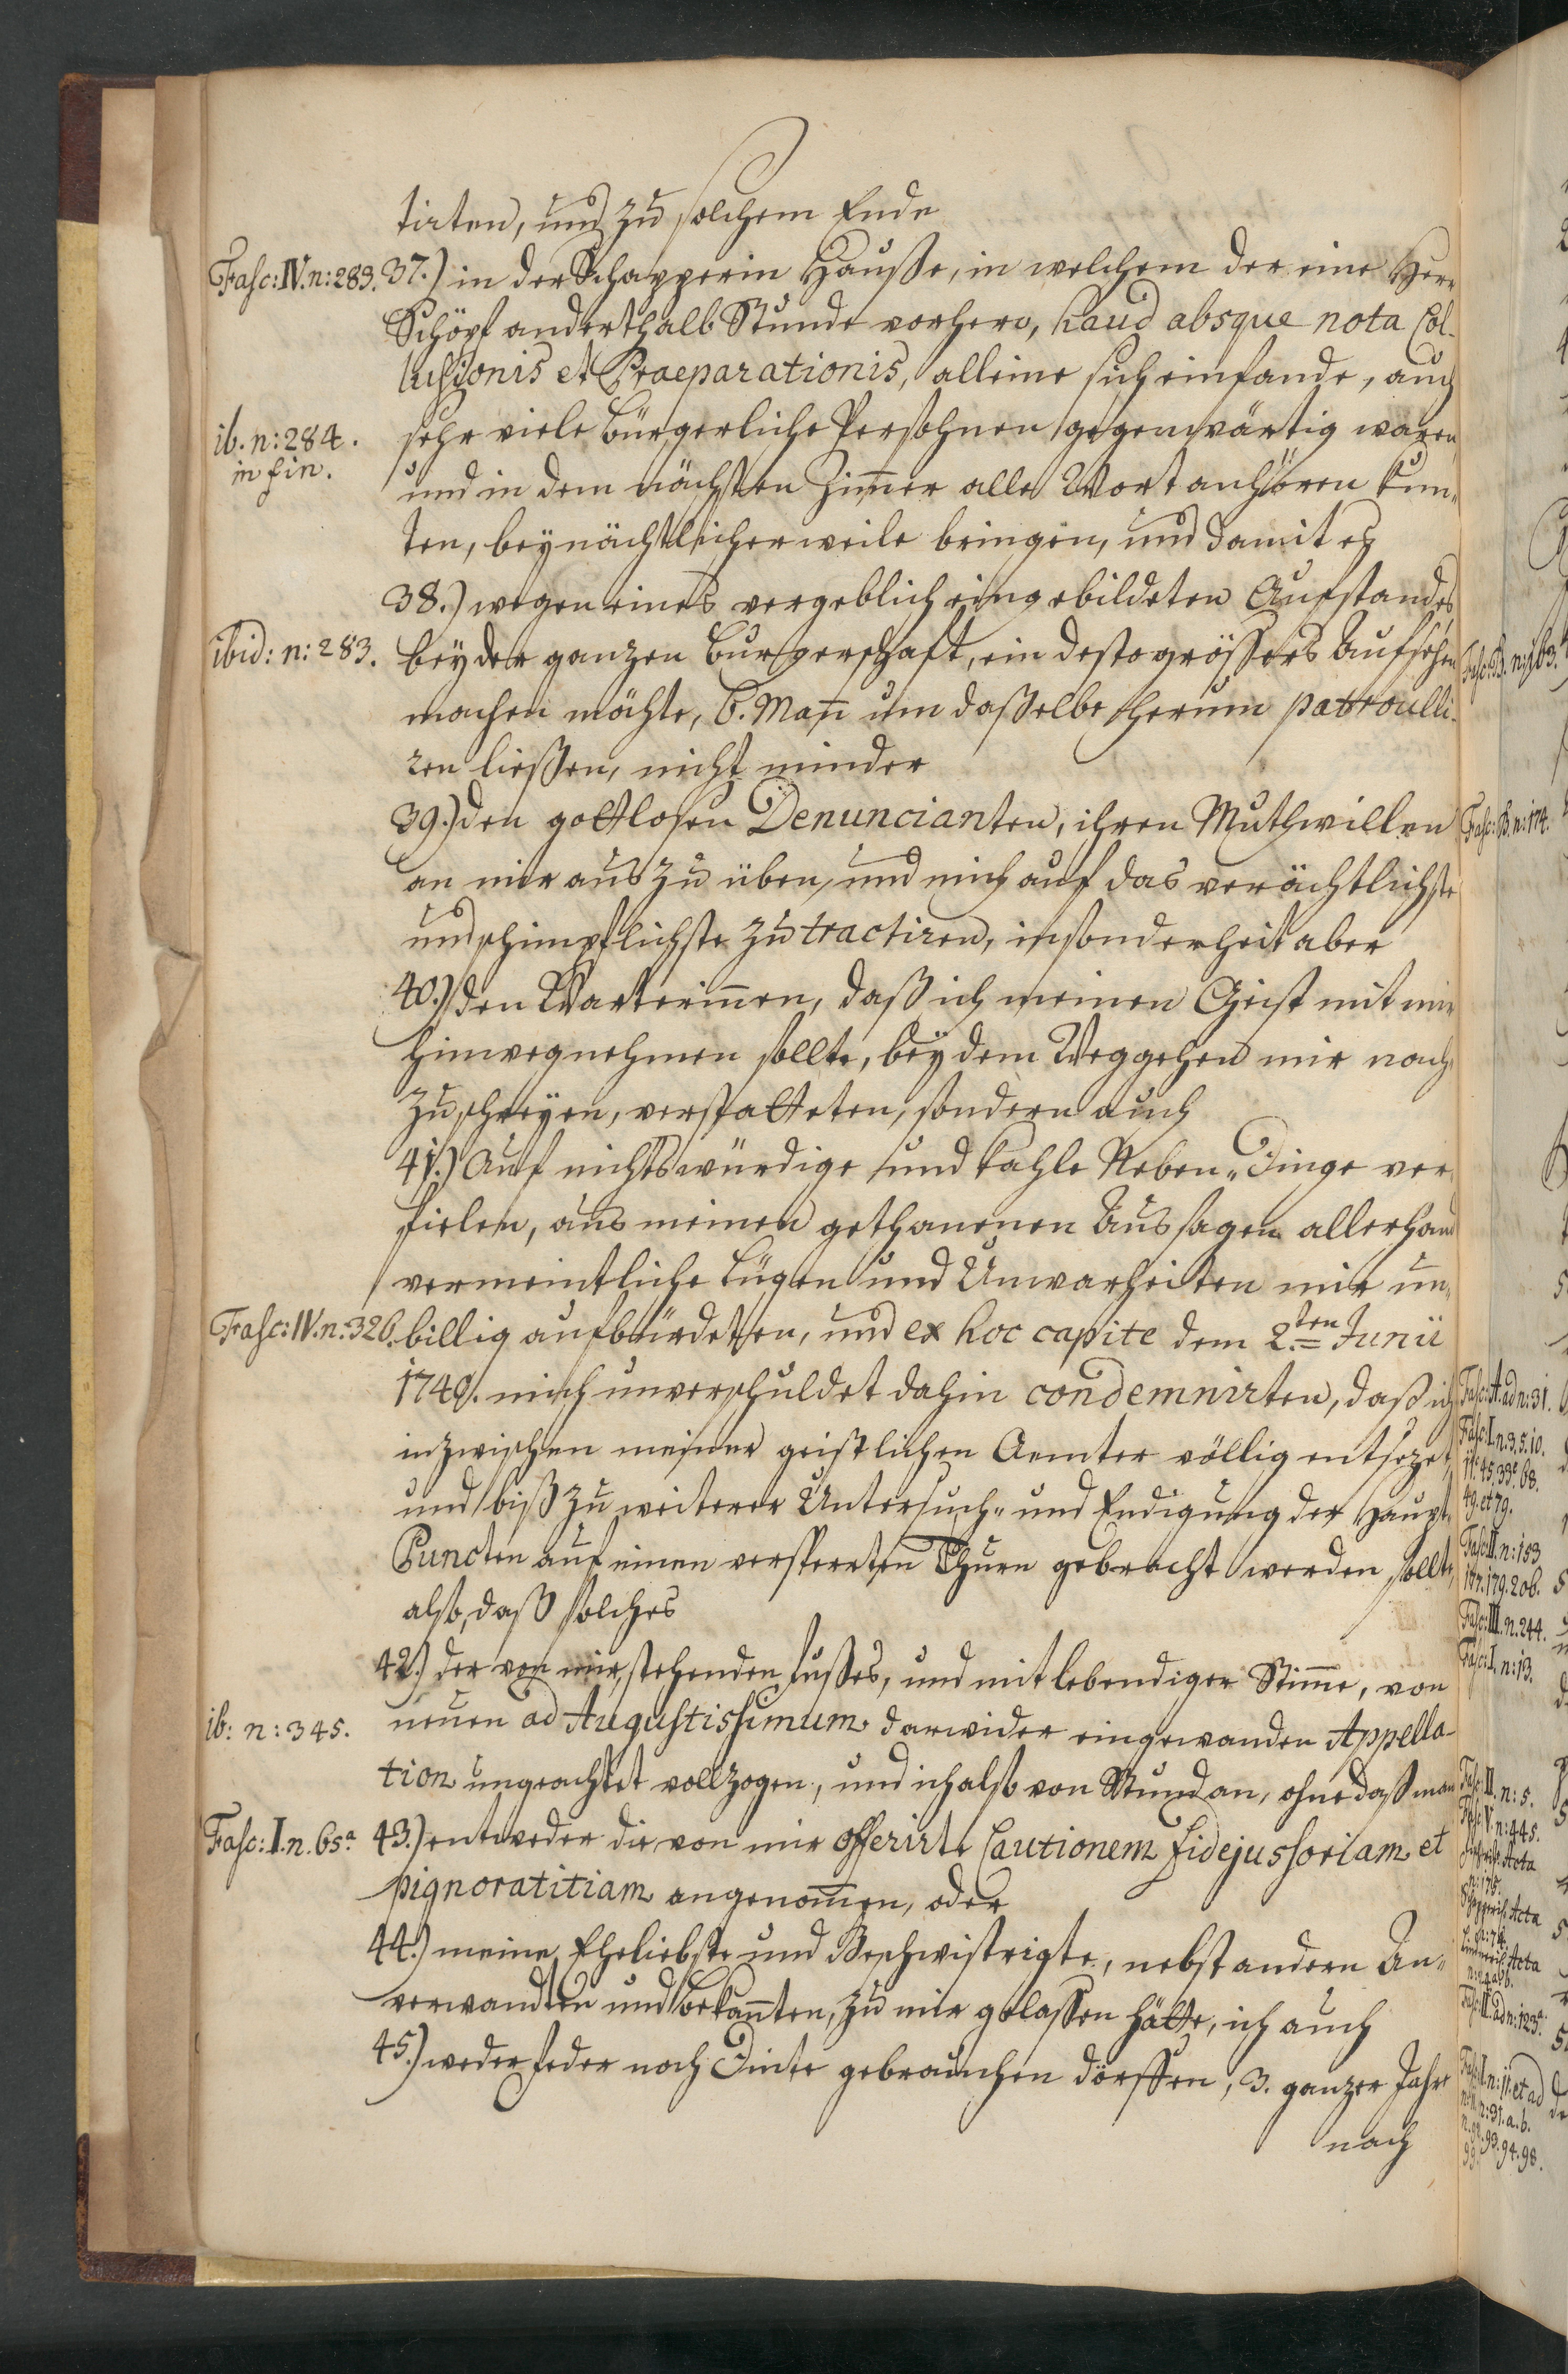 tirten, und zu solchem Ende
Fasc: IV. n: 283. 37.) in der Schapperin Hauße, in welchem der eine Herr
Schöpf anderthalb Stunde vorhero, haud absque nota Col-
lusionis et Praeparationis, alleine sich einfande, auch
ib. n: 284. sehr viele bürgerliche Persohnen gegenwärtig waren,
in fin. und in dem nächsten Zim̅er alle Wort anhören kun-
ten, bey nächtlicher weile bringen, und damit es
38.) wegen eines vergeblich eingebildeten Aufstandes
ibid: n: 283. bey der ganzen Burgerschaft, ein desto grössers Aufsehen
machen möchte, 6. Man̅ um daßelbe herum patroulli-
ren liessen, nicht minder
39.) den gottlosen Denuncianten, ihren Muthwillen
an mir auszu üben, und mich auf das verächtlichste
und schimpflichste zu tractiren, insonderheit aber
40.) den Warterin̅en, daß ich meinen Geist mit mir
hinwegnehmen sollte, bey dem Weggehen mir nach-
zuschreyen, verstatteten, sondern auch
41.) Auf nichtswürdige und kahle Neben-Dinge ver-
fielen, aus meinen gethanenen Aussagen allerhand
vermeintliche Lügen und Unwarheiten mir un-
Fasc: IV. n: 326. billig aufbürdeten, und ex hoc capite dem 2.ten Junii
1740. mich unverschuldet dahin condemnirten, daß ich
inzwischen meiner geistlichen Aemter völlig entsezet,
und biß zu weiterer Untersuch- und Endigung der Haupt-
Puncten auf einen versperrten Thurn gebracht werden sollte,
also, daß solches
42.) der von mir, stehenden Fußes, und mit lebendiger Stim̅e, von
ib: n: 345. neuen ad Augustissimum darwider eingewanden Appella-
tion ungeachtet vollzogen, und ich also von Stund an, ohne daß man
Fasc: I. n. 65.a 43.) entweder die von mir offerirte Cautionem fidejussoriam et
pignoratitiam angenom̅en, oder
44.) meine Eheliebste und Geschwistrigte, nebst andern An-
verwandten und Bekan̅ten, zu mir gelassen hätte, ich auch
45.) weder Feder noch Dinte gebrauchen dörffen, 3. ganzer Jahr
nach